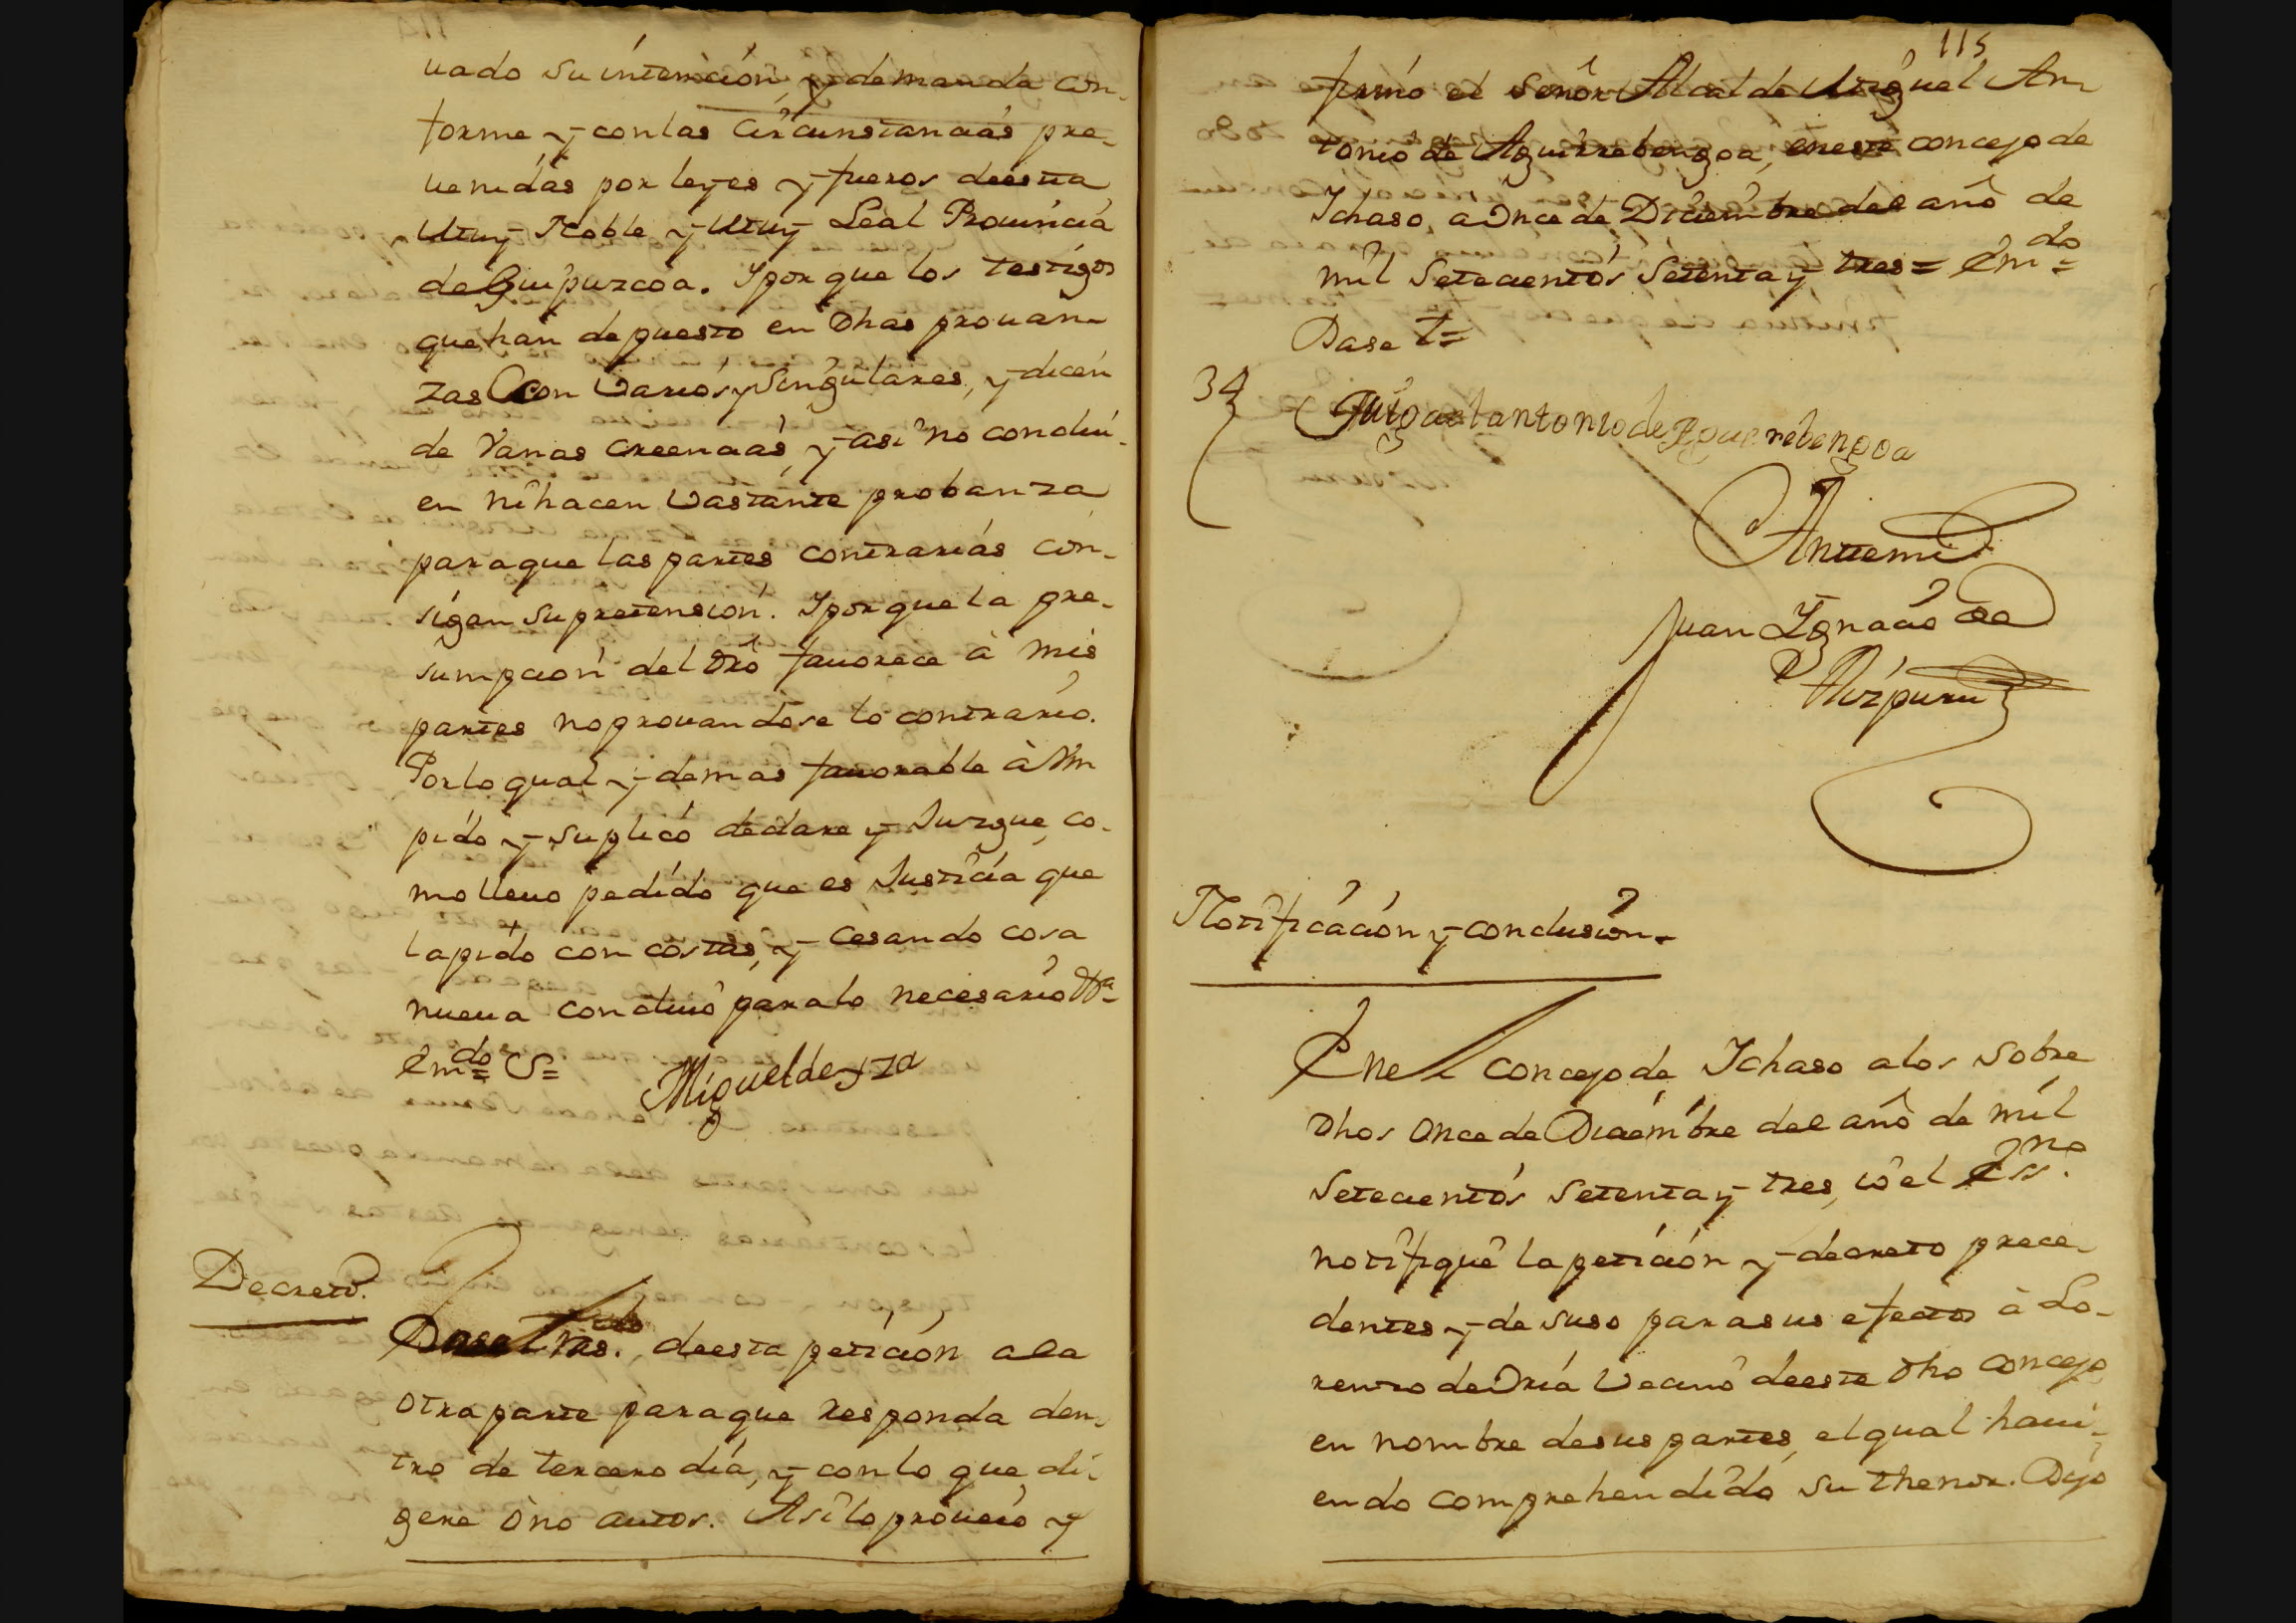 uado su intencion, y demanda con-
forme y con las circunstancias pre-
uenidas por leyes y fueros deesta
Muy Noble y Muy Leal Prouincia
de Guipuzcoa. Y porque los testigos
que han depuesto en dhas prouan-
zas son varios y singulares, y dicen
de vanas creencias, y asi no conclui-
en ni hacen vastante probanza
para que las partes contrarias con-
sigan su pretension. Y porque la pre-
sumpcion del dro fauorece à mis
partes no prouandose lo contrario.
Por lo qual y demas fauorable à Vm
pido y suplico declare y Juzgue, co-
mo lleuo pedido que es Justicia que
la pido con costas, y cesando cosa
nueua concluio para lo necesario
em.do S=
Miguel de Yza
Decreto.
Dase tras.do deesta peticion ala
otra parte para que responda den-
tro de tercero dia, y con lo que di-
gere ò no autos. Asi lo proueio y
115
firmó el señor Alcalde Miguel An-
tonio de Aguirrebengoa, eneste concejo de
Ichaso, a Once de Diciembre del año de
mil Setecientos Setenta y tres = em.do =
Dase t=
34
Miguel antonio de Aguirrebengoa
Antemi
Juan Ygnacio de
Aizpuru
Notificacion y conclusion.
Enel concejo de Ichaso alos sobre
dhos once de Diciembre del año de mil
Setecientos Setenta y tres, io el Ess.no
notifiquè la peticion y decreto prece-
dentes y de suso para sus efectos à Lo-
renzo de Oria vecino deeste dho concejo
en nombre desus partes, el qual haui-
endo comprehendido su thenor. Dijo